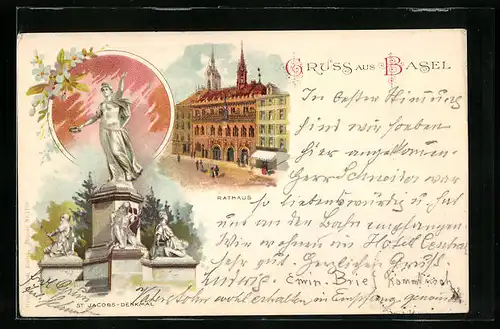 GRUSS AUS BASEL
In bester Stimmung
sind wir soeben
hier angekommen.
Herr Schneider war
so liebenswürdig u. hat
uns an der Bahn empfangen
Wir wohnen im Hotel Central
sehr gut. Herzlichen Gruß
Ludwig. Erwin. Brie
erhalten in Empfang genommen
RATHAUS
ST. JACOBS-DENKMAL